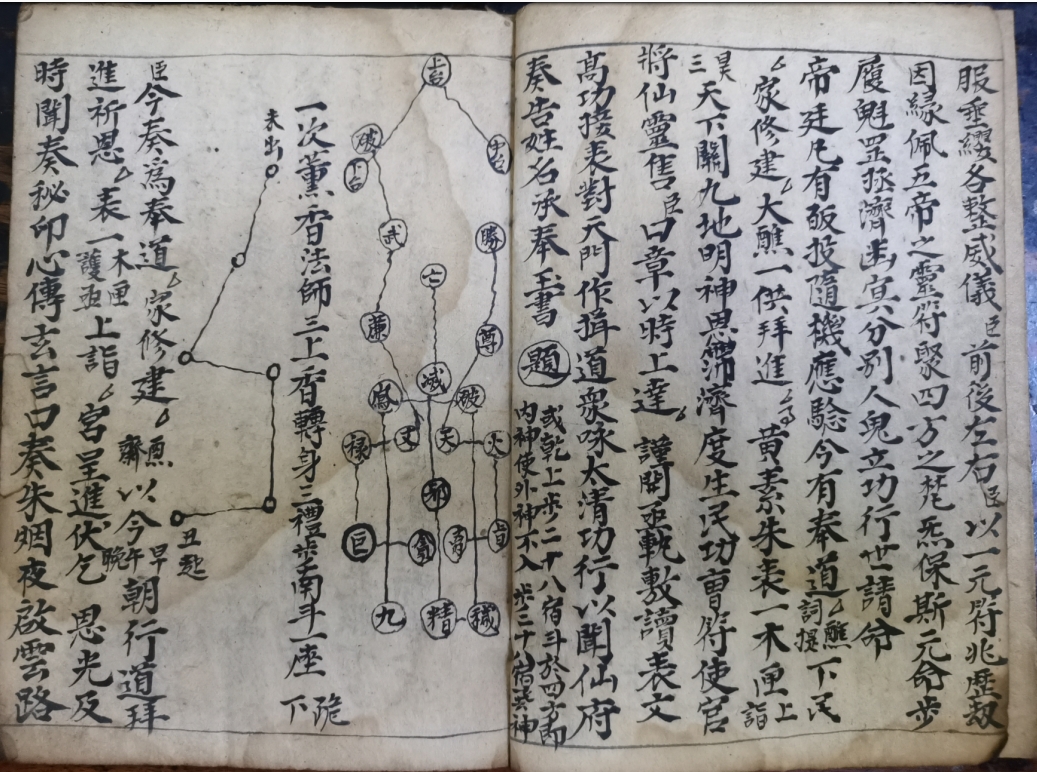 服垂纓各整威儀臣前後左右臣以一元符兆歷劫
因緣佩五帝之靈符聚四方之炁保斯元命步
履魁罡拯濟幽冥分別人鬼立功行世請命
帝廷凡有皈投隨機應驗今有奉道醮詞撰下民
家修建大醮一供拜進黃素朱表一木匣上詣
昊三天下關九地明神恩霈濟度生民功曹符使官
將仙靈售臣曰章以時上達謹開函執敷讀表文
高功接表對天門作揖道眾咏太清功行以聞仙府
奏告姓名承奉玉書 題 或乾上步二十八宿斗於四字即
內神使外神不入步三十宿
上台
中台
破
下台
武
勝
七
廉
尊
威
破
文
天
火
祿
邪
巨
貪
九
精
穢
一次薰香法師三上香轉身三禮步南斗一座跪下
未出
丑起
臣今奏為奉道家修建齋以今早午晚朝行道拜
進祈恩表一木匣護函上詣宮呈進伏乞恩光及
時聞奏秘印心傳玄言曰奏朱烟夜啟雲路